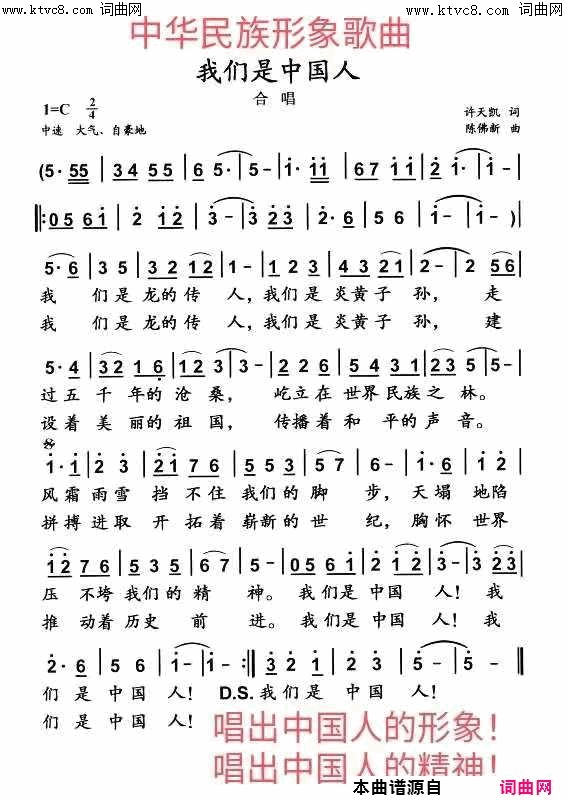 www.ktvc8.com 词曲网 www.ktvc8.com 词曲网
中华民族形象歌曲
我们是中国人
合 唱
1=C 2/4
许天凯 词
中速 大气、自豪地
陈佛新 曲
(5· 55 | 345 | 05 56 | 5 - | 1· 1 | 671 | 2 1 | 1 - |
‖: 0561 | 2 12 | 3 - | 3 23 | 2· 6 | 56 | 1 - | 1 - )
5· 6 | 35 | 32 12 | 1 - | 1· 2 23 | 43 21 | 2 - | 2 56 |
我 们是龙的传 人,我们是炎黄子 孙, 走
我 们是龙的传 人,我们是炎黄子 孙, 建
5· 4 | 32 16 | 23 | 3 - | 226 | 56 1 | 23 5 | 5 - |
过五 千年的沧 桑, 屹立在 世界民族之 林。
设着 美丽的祖 国, 传播着 和平的声 音。
1· 1 | 2 3 | 21 76 | 56 | 53 23 | 5 6 | 1· 1 | 6 5 |
风霜雨雪 挡 不住 我们的脚 步,天塌 地陷
拼搏进取 开 拓着 崭新的世 纪,胸怀 世界
12 76 | 5 35 | 67 | 5 - | 0561 | 2 12 | 3 - | 3 23 |
压 不垮我们的精 神。我们是 中国 人! 我
推 动着历史 前 进。我们是 中国 人! 我
2· 6 | 56 | 1 - | 1 - :‖ 032 | 12 | 56 | 1 - | 1 - ‖
们是中国 人! D.S.我们是 中国 人!
们是中国 人!
唱出中国人的形象!
唱出中国人的精神!
本曲谱源自 词曲网